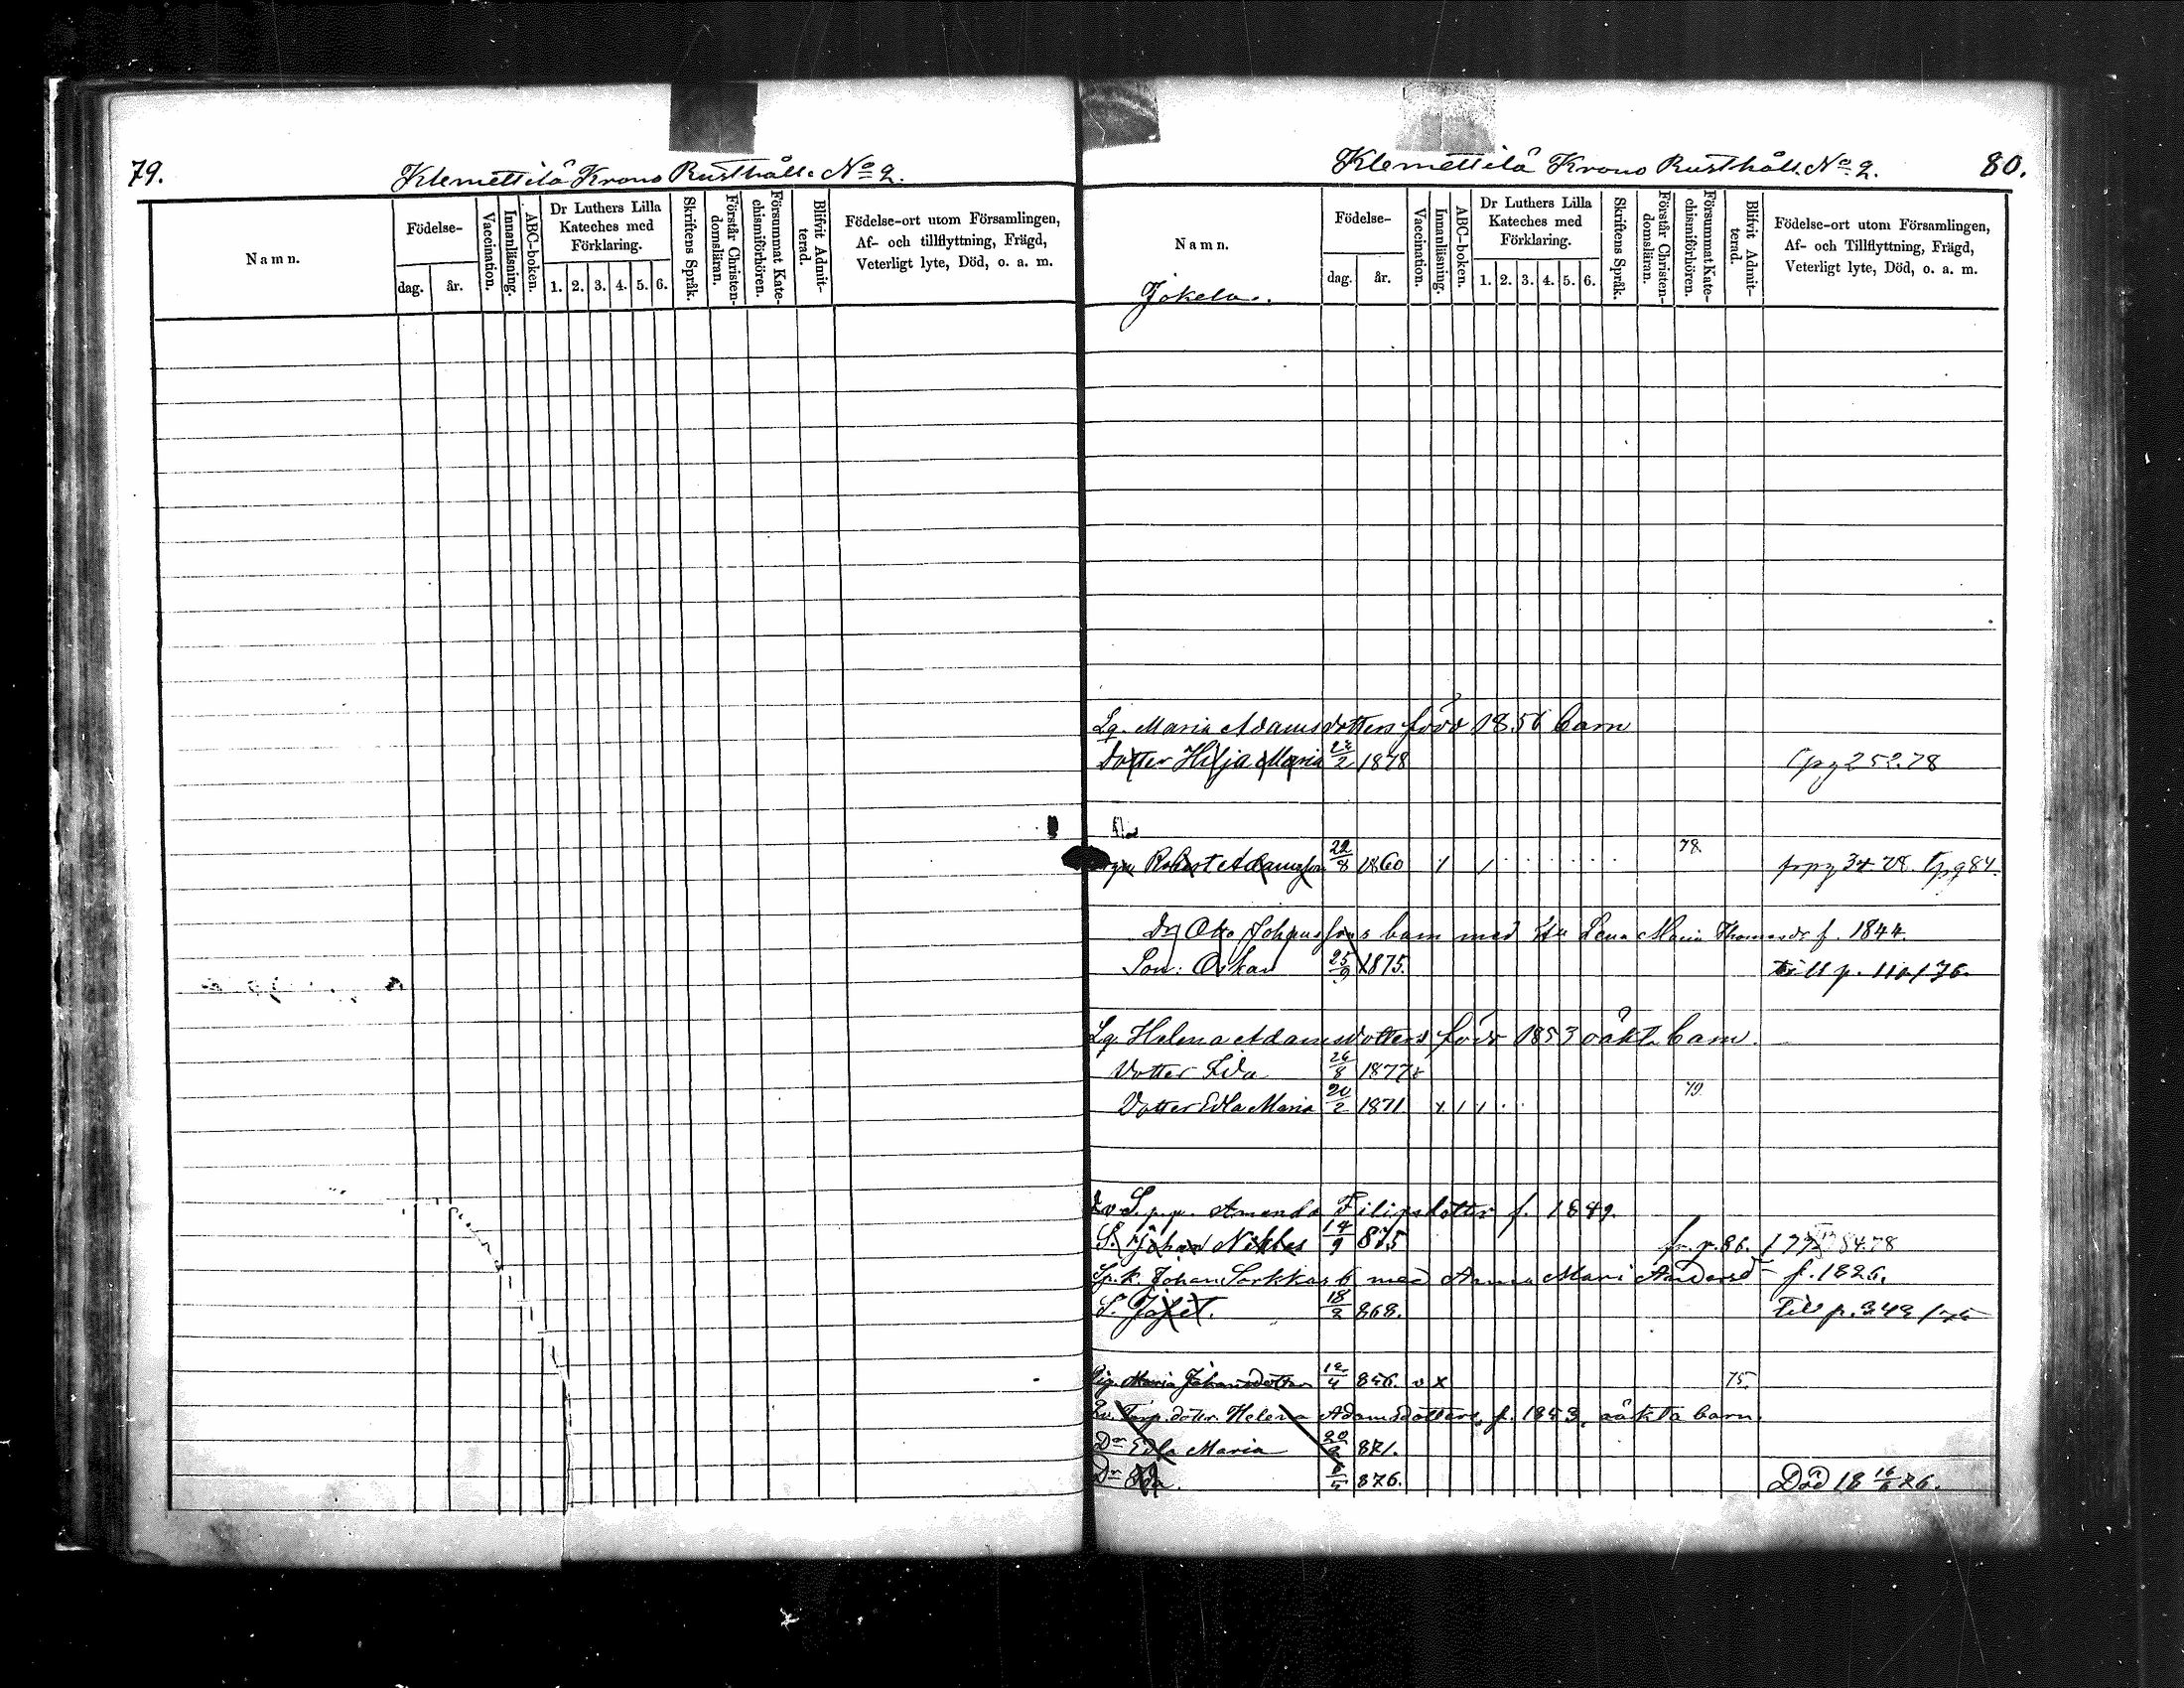 79.
Klemettilä Krono Rusthåll. No 2.
Namn.
Födelse-
dag. år.
Vaccination.
Innanläsning.
ABC-boken.
Dr Luthers Lilla Kateches med Förklaring.
1. 2. 3. 4. 5. 6.
Skriftens Språk.
Förstår Christen-domsläran.
Försummat Kate-chismiförhören.
Blifvit Admit-terad.
Födelse-ort utom Församlingen,
Af- och tillflyttning, Frägd,
Veterligt lyte, Död, o. a. m.
Klemettilä Krono Rusthåll. No 2.
80.
Namn.
Jokela.
Födelse-
dag. år.
Vaccination.
Innanläsning.
ABC-boken.
Dr Luthers Lilla Kateches med Förklaring.
1. 2. 3. 4. 5. 6.
Skriftens Språk.
Förstår Christen-domsläran.
Försummat Kate-chismiförhören.
Blifvit Admit-terad.
Födelse-ort utom Församlingen,
Af- och Tillflyttning, Frägd,
Veterligt lyte, Död, o. a. m.
Lq. Maria Adamsdotters född 1856 barn
Dotter Hilja Maria 1878 252.78
Robert Adamsson 22/8 1860 78.
Otto Johanssons barn med Lena Maria Thomasdr f. 1844.
Son: Oskar 25/9 1875. till p. 110/76.
Lq. Helena Adamsdotters född 1853 oäkta barn.
Dotter Ida 26/8 1877
Dotter Edla Maria 20/2 1871 x 79.
Amanda Filipsdotter f. 1849.
S. Johan Niklas 14/9 875 fr. p. 86. 84.78
Johan Sarkkas b. med Anna Mari Andersd f. 1826.
S. Jafet. 18/2 868. Till p. 343/75
Pig. Maria Johansdotter 856. v x 75.
Torp. dottr. Helena Adamsdotters, f. 1853, oäkta barn.
Dr Edla Maria 20/2 871.
Dr Ida. 876. Död 18 76.